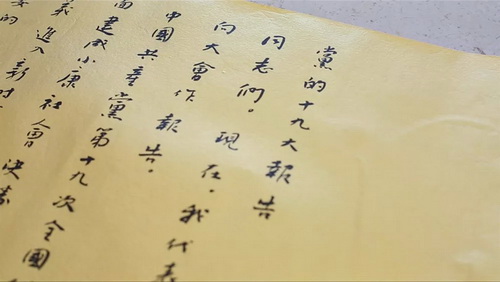 黨的十九大報告
同志們。現在，我代表
向大會作報告。
中國共產黨第十九次全國
面建成小康社會決勝
義進入新時
的